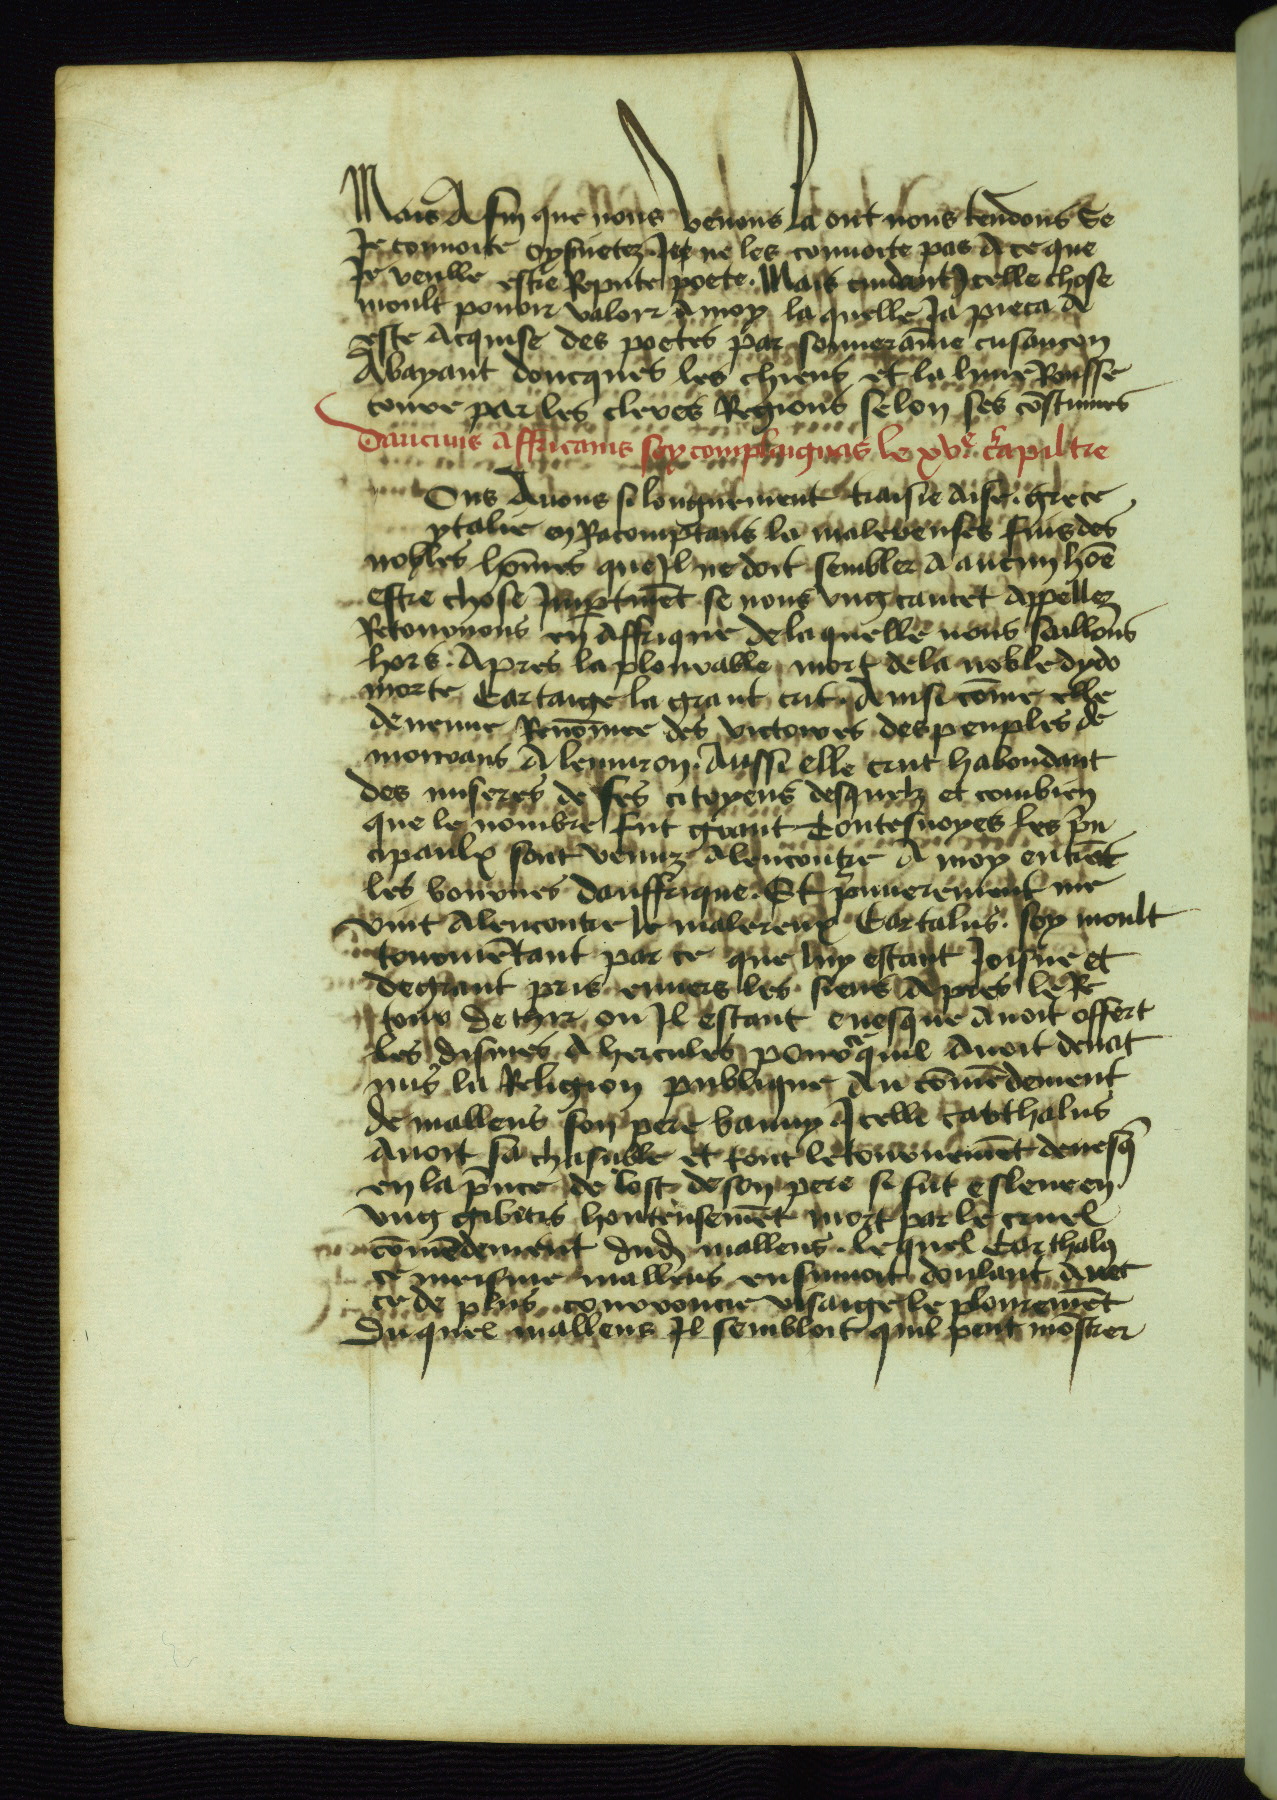 Mais A fin que nous venons la ont nous tendons Se
Je convoite oysivetez Je ne les convoite pas A ce que
Je veulle estre Repute poete. Mais cuidant Icelle chose
moult povoir valoir A moy la quelle Ja pieca A
este Acquise des poetes par souveraine cusancon
Abayant doncques les chiens et la lune Rousse
coure par les cleres Regions selon ses coustumes
Daucuns Affricains soy complaignas le xve. Capiltre
Ous Avons si longuement traisie Aise. grece
ytalie en Racomptans la malereuses fins des
nobles hōmes que Il ne doit sembler A aucun hōe
estre chose Imptinēt se nous ung tantet Appellez
Retournons en Affrique de la quelle nous saillons
hors. Apres la plourable mort de la noble dydo
morte Cartaige la grant crut. Ainsi cōme elle
devenue Renōmee des victoires des peuples de
morans A lenviron. Aussi elle crut habondant
des miseres de ses citoyens desquelz et combien
que le nombre fut grant Toutesvoyes les pn
cipaulx sont venuz Alencontre A moy entrēt
les bournes dauffrique. Et pmierement me
vint Alencontre le malereux Cartalus. soy moult
tourmētant par ce que luy estant Joisne et
de grant pris envers les siens Apres le Re
tour de thir ou Il estant evesque Avoit offert
les dismes A hercules pour quil Avoit devāt
mis la Religion publique Au cōmēdement
de malleus son pere banny Icelle Carthalus
Avoit sa chasuble et tout le tournemēt devesq
en la pnce de lost de son pere si fut esleve en
ung gibetis honteusemēt mort par le cruel
cōmēdement dud malleus. le quel Carthalꝰ
ce meisme malleus ensuivoit doulant Avec
ce de plus courroucie visaige le plouremēt
Du quel malleus Il sembloit quil peut mōstrer